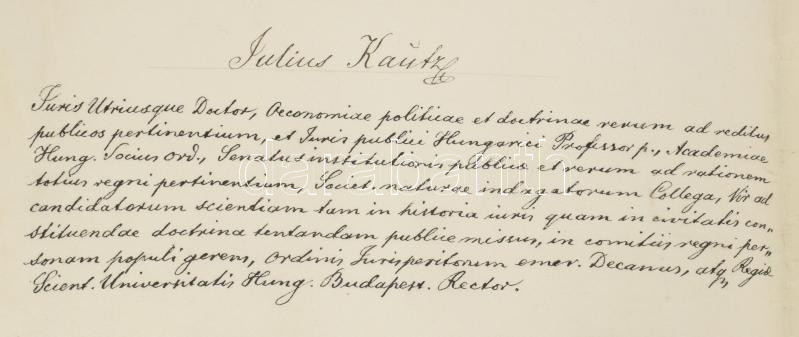 Julius Kautz
Juris Utriusque Doctor, Oeconomiae politicae et doctrinae rerum ad reditus
publicos pertinentium, et Juris publici Hungarici Professor p., Academiae
Hung. Socius ord., Senatus institutionis publicae et rerum ad rationem
totius regni pertinentium, Societ. naturae indagatorum Collega, Vir ad
candidatorum scientiam tam in historia iuris quam in civitatis con„
stituendae doctrina tentandam publice missus, in comitiis regni per„
sonam populi gerens, ordinis Jurisperitorum emer. Decanus, atq Regiae
Scient. Universitatis Hung. Budapest. Rector.
darabanth